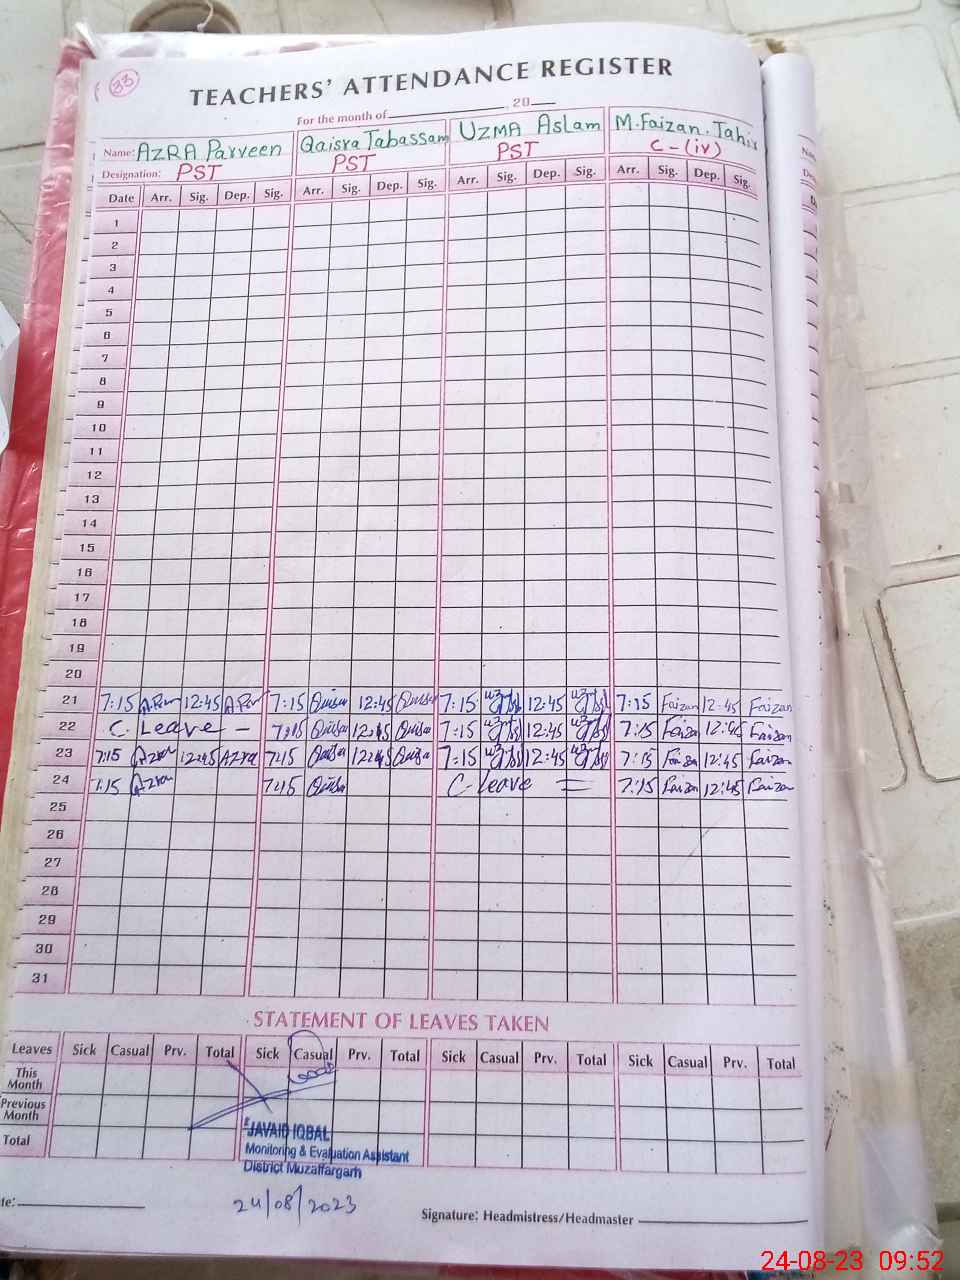 33
TEACHERS' ATTENDANCE REGISTER
For the month of , 20
Name: AZRA Parveen Qaisra Tabassam UZMA Aslam M.Faizan.Tahir
Designation: PST PST PST C-(iv)
Date Arr. Sig. Dep. Sig. Arr. Sig. Dep. Sig. Arr. Sig. Dep. Sig. Arr. Sig. Dep. Sig.
1
2
3
4
5
6
7
8
9
10
11
12
13
14
15
16
17
18
19
20
21 7:15 12:45 7:15 12:45 7:15 12:45 7:15 Faizan 12:45 Faizan
22 C. Leave - 7:15 12:45 7:15 12:45 7:15 Faizan 12:45 Faizan
23 7:15 Azra 12:45 Azra 7:15 12:45 7:15 12:45 7:15 Faizan 12:45 Faizan
24 7:15 Azra 7:15 C-leave = 7:15 Faizan 12:45 Faizan
25
26
27
28
29
30
31
STATEMENT OF LEAVES TAKEN
Leaves Sick Casual Prv. Total Sick Casual Prv. Total Sick Casual Prv. Total Sick Casual Prv. Total
This Month
Previous Month
Total
JAVAID IQBAL
Monitoring & Evaluation Assistant
District Muzaffargarh
te:
24/08/2023
Signature: Headmistress/Headmaster
24-08-23 09:52